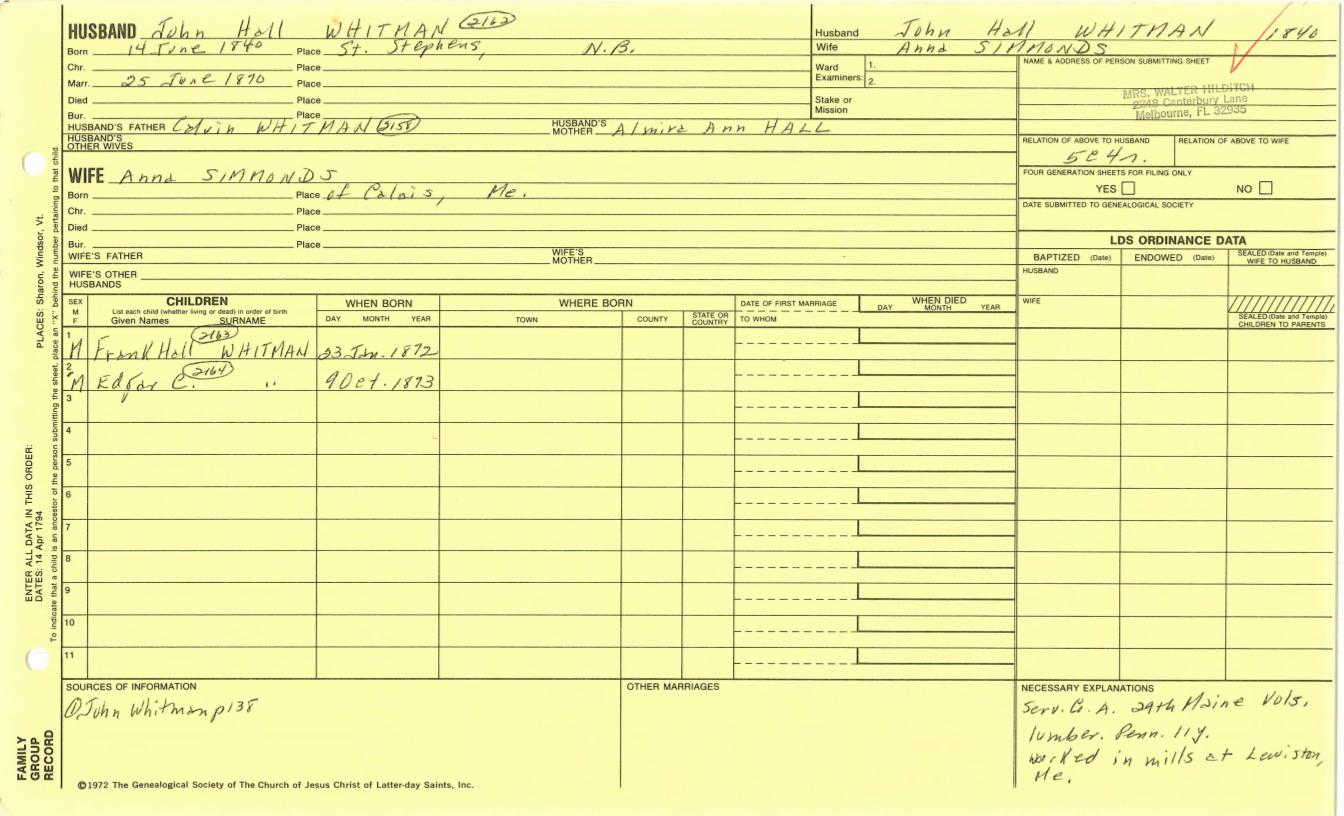 HUSBAND John Hall WHITMAN 2162
Born 14 June 1840 Place St. Stephens, N.B.
Chr. Place
Marr. 25 June 1870 Place
Died Place
Bur. Place
HUSBAND'S FATHER Calvin WHITMAN 2158 HUSBAND'S MOTHER Almira Ann HALL
HUSBAND'S OTHER WIVES
WIFE Anna SIMMONDS
Born Place of Calais, Me.
Chr. Place
Died Place
Bur. Place
WIFE'S FATHER WIFE'S MOTHER
WIFE'S OTHER HUSBANDS
Husband John Hall WHITMAN 1840
Wife Anna SIMMONDS
Ward Examiners: 1.
2.
Stake or Mission
NAME & ADDRESS OF PERSON SUBMITTING SHEET
MRS. WALTER HILDITCH
2248 Canterbury Lane
Melbourne, FL 32935
RELATION OF ABOVE TO HUSBAND RELATION OF ABOVE TO WIFE
5c 4r.
FOUR GENERATION SHEETS FOR FILING ONLY
YES NO
DATE SUBMITTED TO GENEALOGICAL SOCIETY
LDS ORDINANCE DATA
BAPTIZED (Date) ENDOWED (Date) SEALED (Date and Temple) WIFE TO HUSBAND
HUSBAND
WIFE
SEALED (Date and Temple) CHILDREN TO PARENTS
SEX M F
CHILDREN
List each child (whether living or dead) in order of birth
Given Names SURNAME
WHEN BORN
DAY MONTH YEAR
WHERE BORN
TOWN COUNTY STATE OR COUNTRY
DATE OF FIRST MARRIAGE
TO WHOM
WHEN DIED
DAY MONTH YEAR
1 M Frank Hall WHITMAN 2163 23 Jan. 1872
2 M Edgar C. " 2164 9 Oct. 1873
3
4
5
6
7
8
9
10
11
SOURCES OF INFORMATION
① John Whitman p138
OTHER MARRIAGES
NECESSARY EXPLANATIONS
Serv. G. A. 29th Maine Vols.
lumber. Penn. 11y.
worked in mills at Lewiston,
Me.
©1972 The Genealogical Society of The Church of Jesus Christ of Latter-day Saints, Inc.
FAMILY GROUP RECORD
ENTER ALL DATA IN THIS ORDER:
DATES: 14 Apr 1794
PLACES: Sharon, Windsor, Vt.
To indicate that a child is an ancestor of the person submitting the sheet, place an "X" behind the number pertaining to that child.